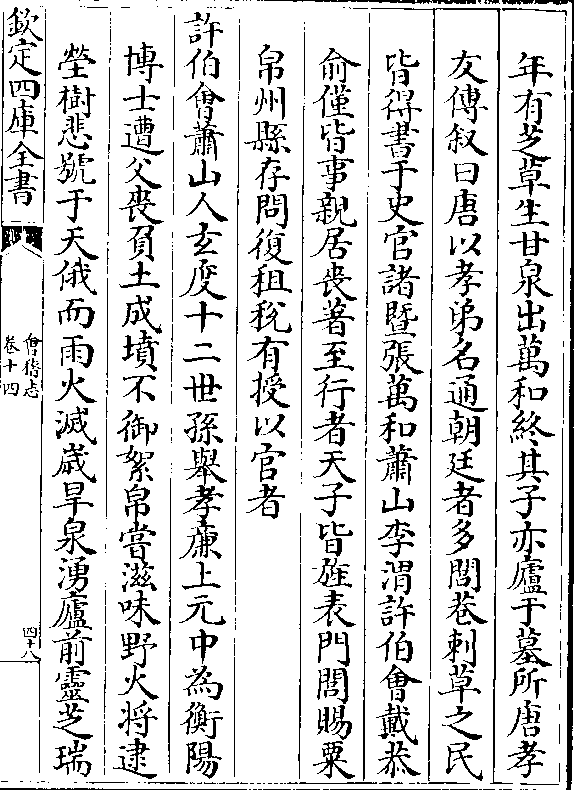 年有芝草生甘泉出萬和終其子亦廬于墓所唐孝
友傳叙曰唐以孝弟名通朝廷者多閭巷刺草之民
皆得書于史官諸暨張萬和蕭山李渭許伯會戴恭
俞僅皆事親居喪著至行者天子皆旌表門閭賜粟
帛州縣存問復租稅有授以官者
許伯會蕭山人玄度十二世孫舉孝廉上元中為衡陽
博士遭父喪負土成墳不御絮帛嘗滋味野火将逮
塋樹悲號于天俄而雨火滅歲旱泉湧廬前靈芝瑞
欽定四庫全書
會稽志
卷十四
四十八